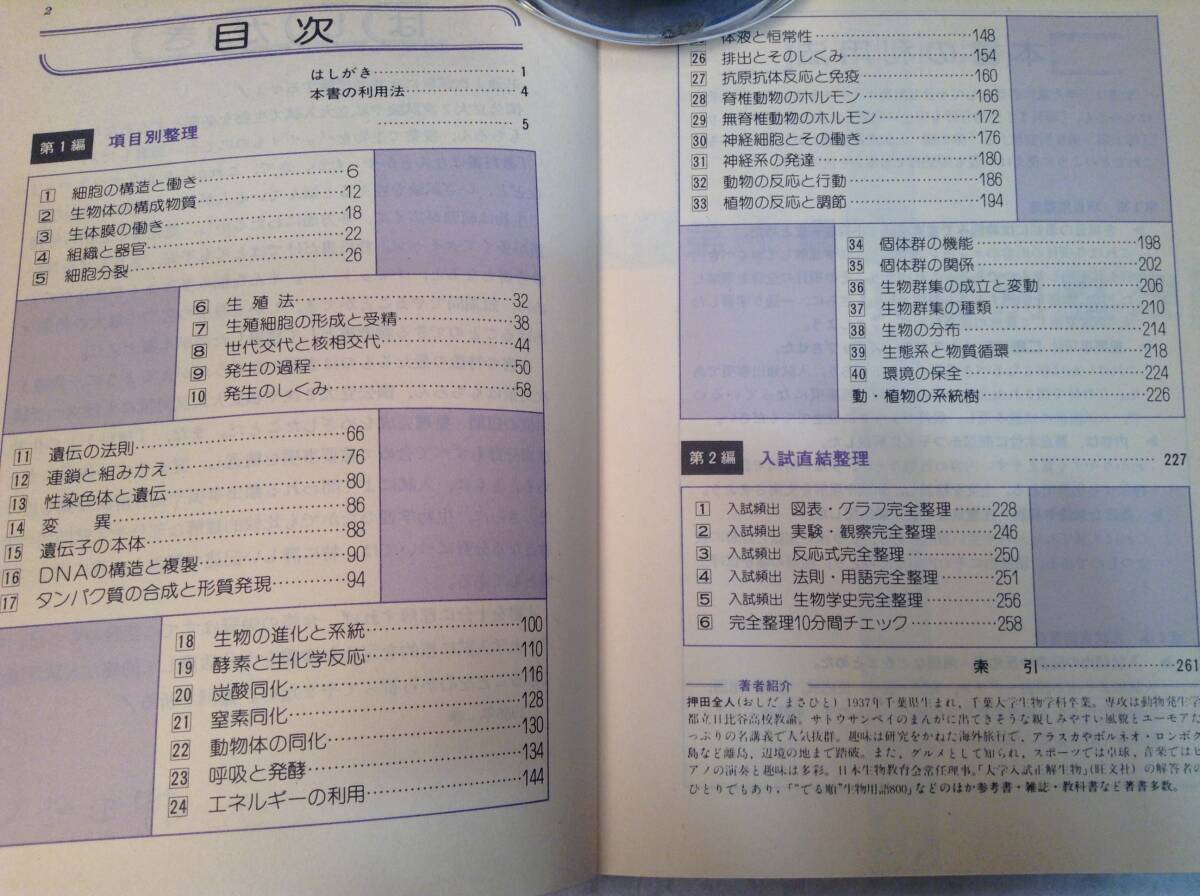 2
目次
はしがき……1
本書の利用法……4
第1編 項目別整理 5
1 細胞の構造と働き……6
2 生物体の構成物質……12
3 生体膜の働き……18
4 組織と器官……22
5 細胞分裂……26
6 生殖法……32
7 生殖細胞の形成と受精……38
8 世代交代と核相交代……44
9 発生の過程……50
10 発生のしくみ……58
11 遺伝の法則……66
12 連鎖と組みかえ……76
13 性染色体と遺伝……80
14 変異……86
15 遺伝子の本体……88
16 DNAの構造と複製……90
17 タンパク質の合成と形質発現……94
18 生物の進化と系統……100
19 酵素と生化学反応……110
20 炭酸同化……116
21 窒素同化……128
22 動物体の同化……130
23 呼吸と発酵……134
24 エネルギーの利用……144
体液と恒常性……148
26 排出とそのしくみ……154
27 抗原抗体反応と免疫……160
28 脊椎動物のホルモン……166
29 無脊椎動物のホルモン……172
30 神経細胞とその働き……176
31 神経系の発達……180
32 動物の反応と行動……186
33 植物の反応と調節……194
34 個体群の機能……198
35 個体群の関係……202
36 生物群集の成立と変動……206
37 生物群集の種類……210
38 生物の分布……214
39 生態系と物質循環……218
40 環境の保全……224
動・植物の系統樹……226
第2編 入試直結整理……227
1 入試頻出 図表・グラフ完全整理……228
2 入試頻出 実験・観察完全整理……246
3 入試頻出 反応式完全整理……250
4 入試頻出 法則・用語完全整理……251
5 入試頻出 生物学史完全整理……256
6 完全整理10分間チェック……258
索引……261
著者紹介
押田全人(おしだ まさひと) 1937年千葉県生まれ,千葉大学生物学科卒業。専攻は動物発生学
都立日比谷高校教諭。サトウサンペイのまんがに出てきそうな親しみやすい風貌とユーモアた
っぷりの名講義で人気抜群。趣味は研究をかねた海外旅行で,アラスカやボルネオ・ロンボク
島など離島,辺境の地まで踏破。また,グルメとして知られ,スポーツでは卓球,音楽ではピ
アノの演奏と趣味は多彩。日本生物教育会常任理事。「大学入試正解生物」(旺文社)の解答者の
ひとりでもあり,「"でる順"生物用語800」などのほか参考書・雑誌・教科書など著書多数。